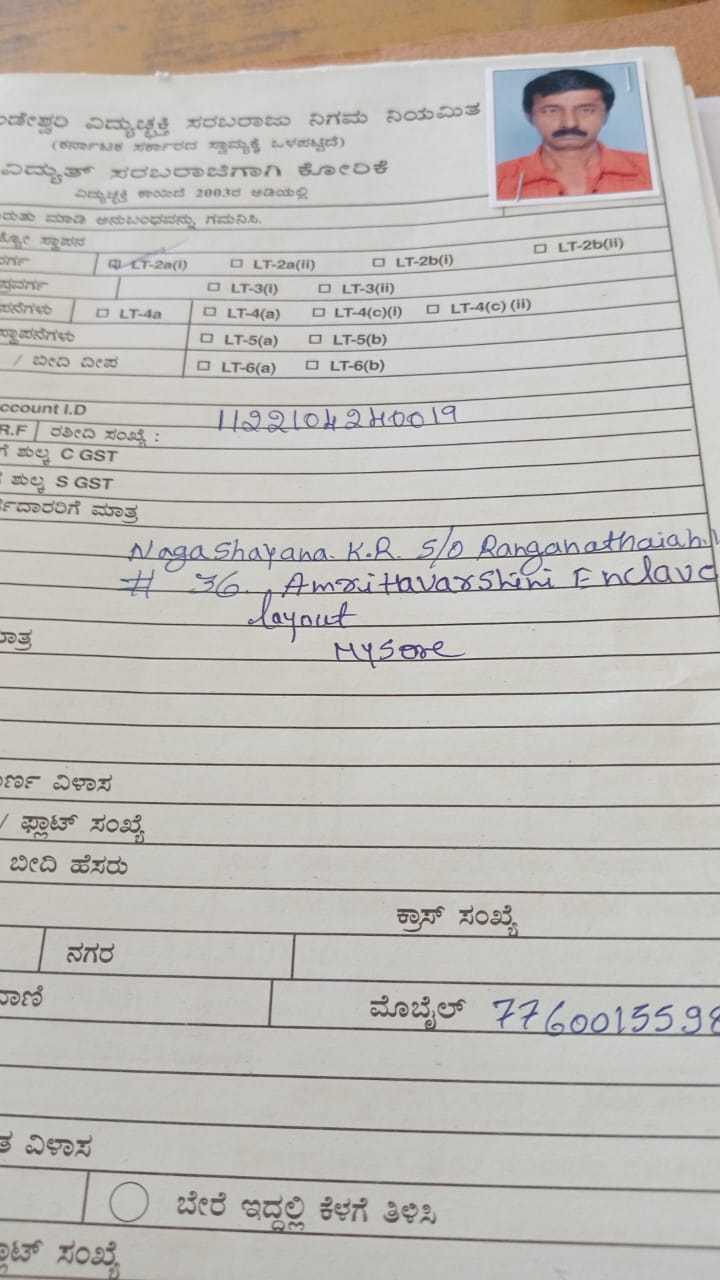 ವಿದ್ಯುಚ್ಛಕ್ತಿ ಸರಬರಾಜು ನಿಗಮ ನಿಯಮಿತ
(ಕರ್ನಾಟಕ ಸರ್ಕಾರದ ಸ್ವಾಮ್ಯಕ್ಕೆ ಒಳಪಟ್ಟಿದೆ)
ವಿದ್ಯುತ್ ಸರಬರಾಜಿಗಾಗಿ ಕೋರಿಕೆ
ವಿದ್ಯುಚ್ಛಕ್ತಿ ಕಾಯಿದೆ 2003ರ ಅಡಿಯಲ್ಲಿ
ಮಾಡಿ ಅನುಬಂಧವನ್ನು ಗಮನಿಸಿ.
ಸ್ಥಾಪನ
LT-2a(i) LT-2a(ii) LT-2b(i) LT-2b(ii)
LT-3(i) LT-3(ii)
LT-4a LT-4(a) LT-4(c)(i) LT-4(c) (ii)
LT-5(a) LT-5(b)
/ ಬೀದಿ ದೀಪ LT-6(a) LT-6(b)
ccount I.D 1122104240019
R.F ರಶೀದಿ ಸಂಖ್ಯೆ :
ಶುಲ್ಕ C GST
ಶುಲ್ಕ S GST
ಮಾತ್ರ
Nagashayana. K.R. S/O Ranganathaiah.
# 36. Amritavarshini Enclave
layout
Mysore
ವಿಳಾಸ
/ ಫ್ಲಾಟ್ ಸಂಖ್ಯೆ
ಬೀದಿ ಹೆಸರು
ಕ್ರಾಸ್ ಸಂಖ್ಯೆ
ನಗರ
ಮೊಬೈಲ್ 7760015598
ವಿಳಾಸ
ಬೇರೆ ಇದ್ದಲ್ಲಿ ಕೆಳಗೆ ತಿಳಿಸಿ
ಸಂಖ್ಯೆ